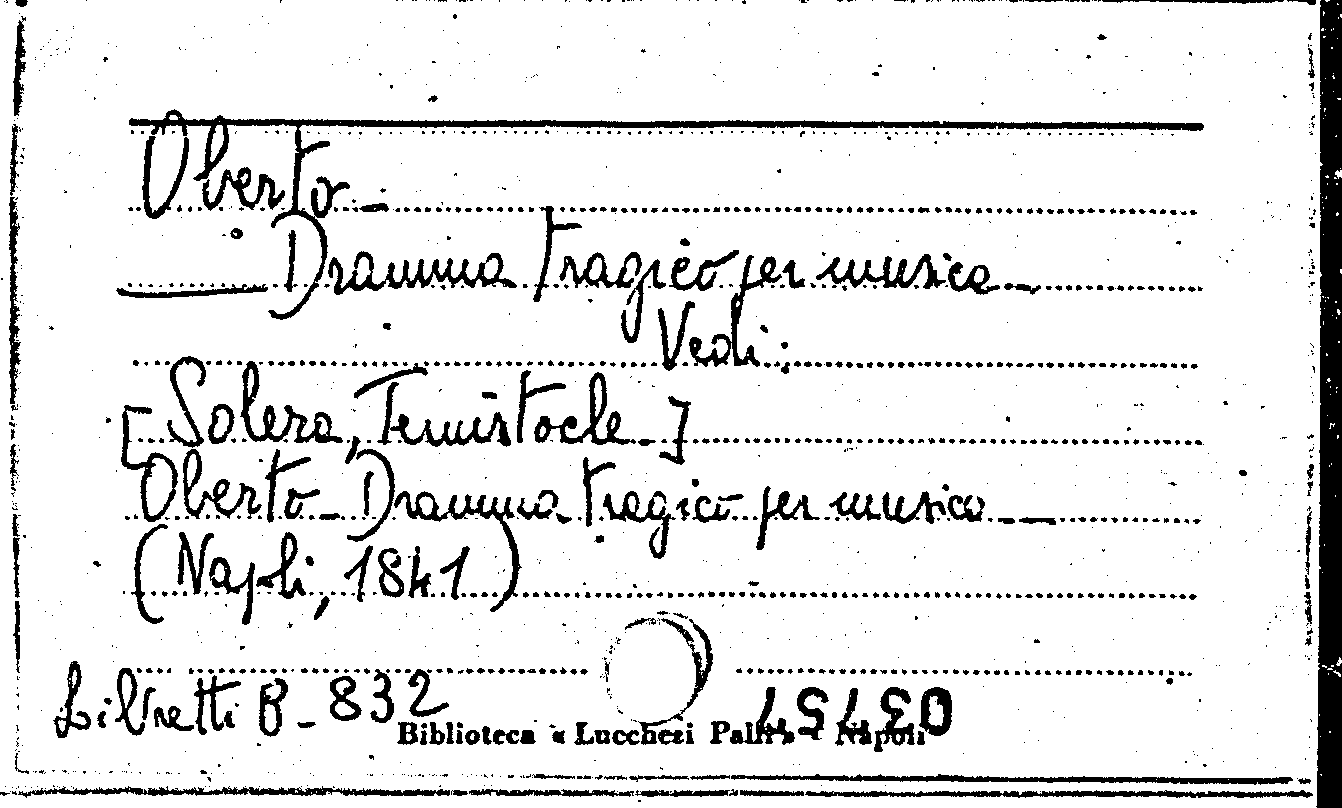 Oberto -
Dramma tragico per musica -
Vedi:
[Solera, Temistocle -]
Oberto - Dramma tragico per musica -
(Napoli, 1841)
Libretti B - 832
Biblioteca « Lucchesi Palli » - Napoli